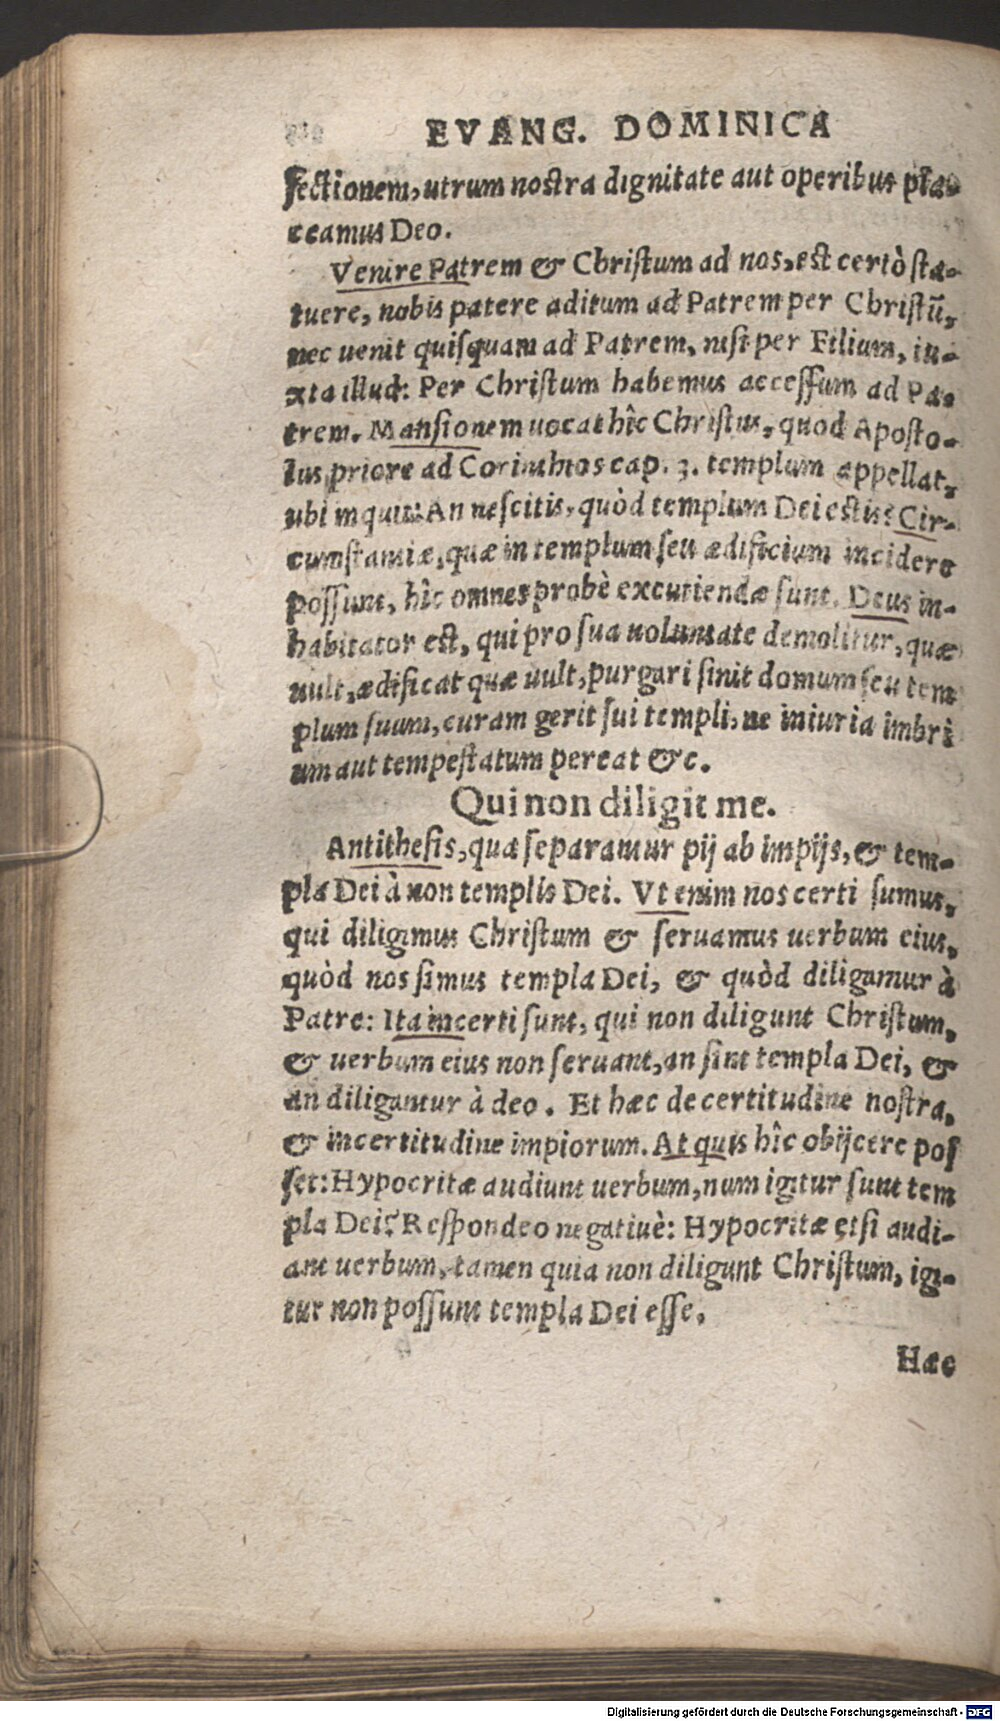 EVANG. DOMINICA
fectionem, utrum nostra dignitate aut operibus pla-
ceamus Deo.
Venire Patrem & Christum ad nos, est certò sta-
tuere, nobis patere aditum ad Patrem per Christū,
nec uenit quisquam ad Patrem, nisi per Filium, iu-
xta illud: Per Christum habemus accessum ad Pa-
trem. Mansionem uocat hîc Christus, quod Aposto-
lus priore ad Corinthios cap. 3. templum appellat,
ubi inquit: An nescitis, quòd templum Dei estis? Cir-
cumstantiæ, quæ in templum seu ædificium incidere
possunt, hîc omnes probè excutiendæ sunt. Deus in-
habitator est, qui pro sua uoluntate demolitur, quæ
uult, ædificat quæ uult, purgari sinit domum seu tem
plum suum, curam gerit sui templi, ne iniuria imbri
um aut tempestatum pereat &c.
Qui non diligit me.
Antithesis, qua separamur pij ab impijs, & tem-
pla Dei à non templis Dei. Vt enim nos certi sumus,
qui diligimus Christum & seruamus uerbum eius,
quòd nos simus templa Dei, & quòd diligamur à
Patre: Ita incerti sunt, qui non diligunt Christum,
& uerbum eius non seruant, an sint templa Dei, &
an diligantur à deo. Et hæc de certitudine nostra,
& incertitudine impiorum. At quis hîc obijcere pos
set: Hypocritæ audiunt uerbum, num igitur sunt tem
pla Dei? Respondeo negatiuè: Hypocritæ etsi audi-
ant uerbum, tamen quia non diligunt Christum, igi-
tur non possunt templa Dei esse.
Hæc
Digitalisierung gefördert durch die Deutsche Forschungsgemeinschaft - DFG